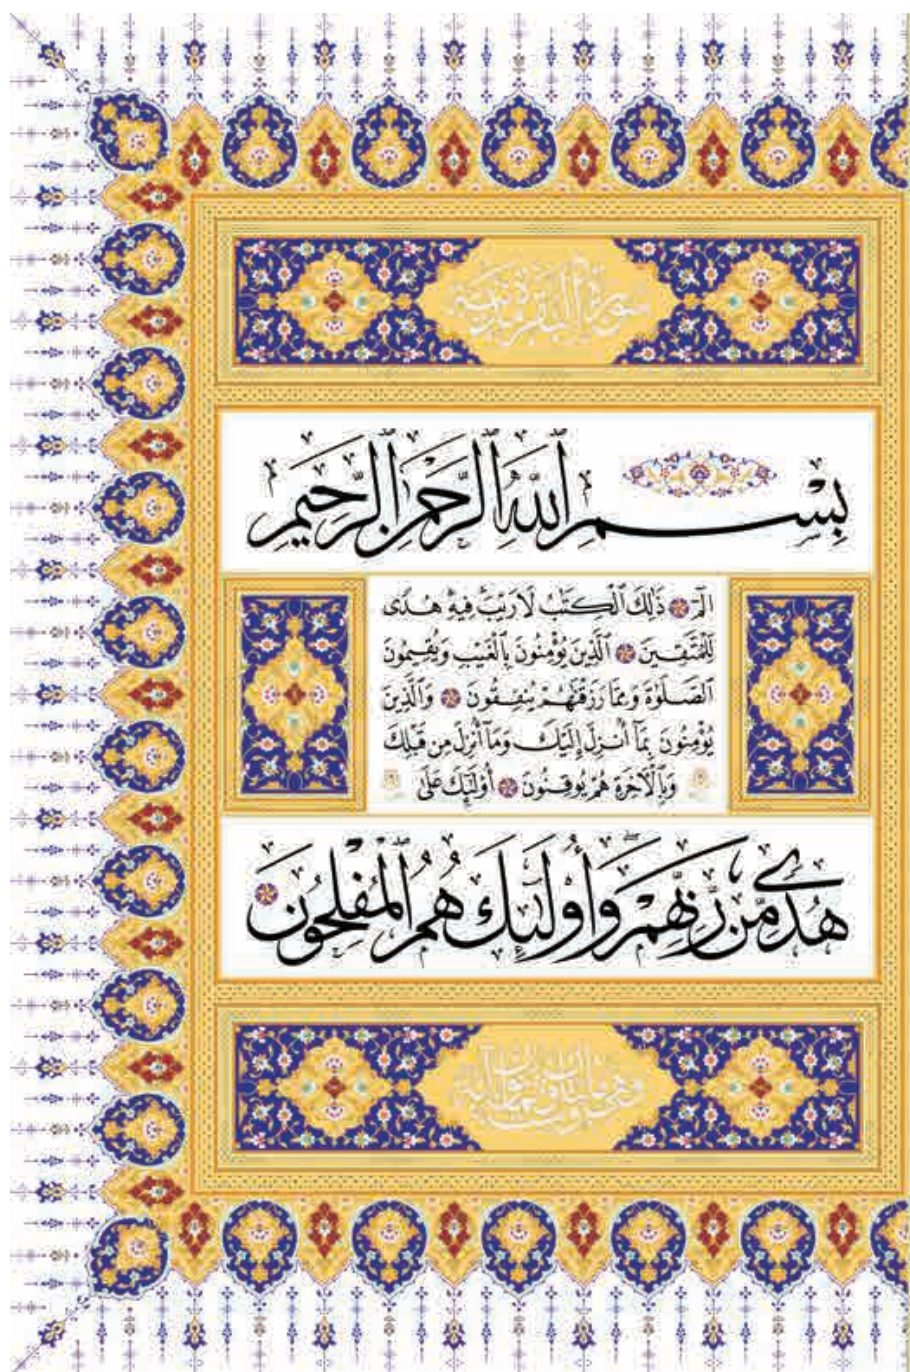 سورة البقرة مدنية
بِسْمِ ٱللَّهِ ٱلرَّحْمَٰنِ ٱلرَّحِيمِ
الٓمٓ ۝ ذَٰلِكَ ٱلْكِتَٰبُ لَا رَيْبَ فِيهِ هُدًى
لِّلْمُتَّقِينَ ۝ ٱلَّذِينَ يُؤْمِنُونَ بِٱلْغَيْبِ وَيُقِيمُونَ
ٱلصَّلَوٰةَ وَمِمَّا رَزَقْنَٰهُمْ يُنفِقُونَ ۝ وَٱلَّذِينَ
يُؤْمِنُونَ بِمَآ أُنزِلَ إِلَيْكَ وَمَآ أُنزِلَ مِن قَبْلِكَ
وَبِٱلْأَخِرَةِ هُمْ يُوقِنُونَ ۝ أُوْلَٰٓئِكَ عَلَىٰ
هُدًى مِّن رَّبِّهِمْ وَأُوْلَٰٓئِكَ هُمُ ٱلْمُفْلِحُونَ ۝